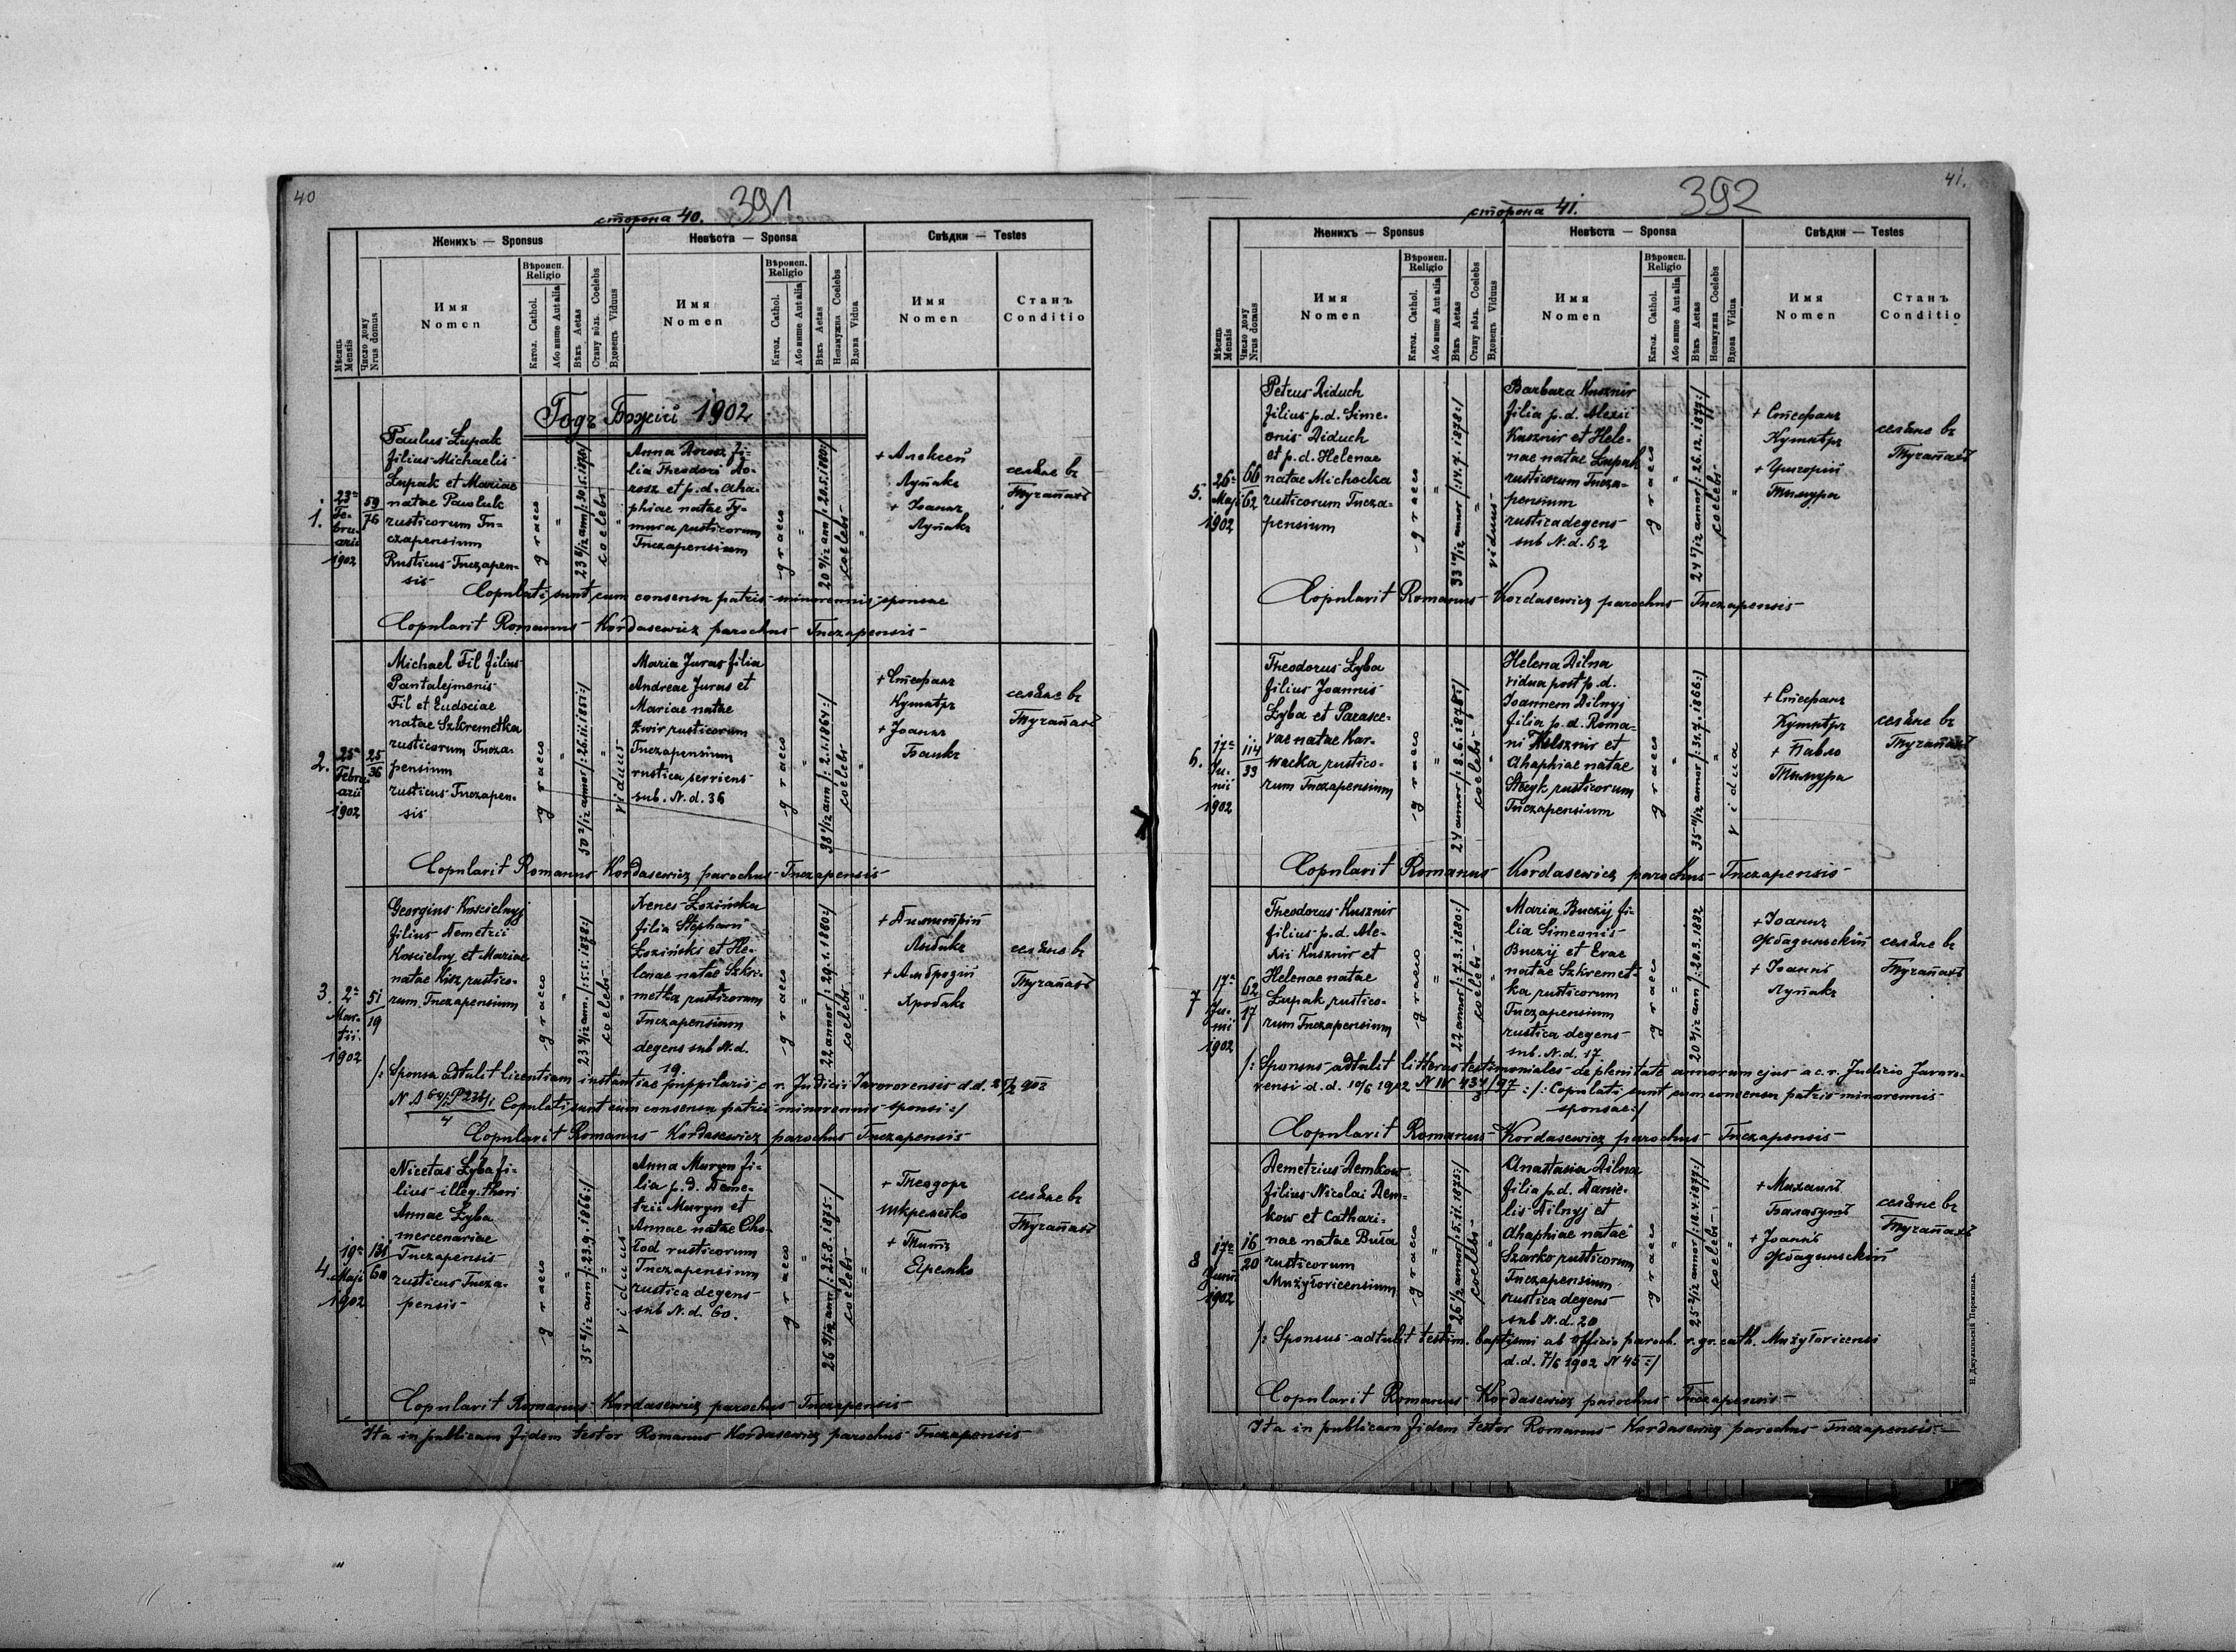 40
391
сторона 40.
Женихъ — Sponsus
Невѣста — Sponsa
Свѣдки — Testes
Мѣсяць Mensis
Число дому Nrus domus
Имя Nomen
Вѣроисп. Religio
Катол. Cathol.
Або инше Aut alia
Вѣкъ Aetas
Стану вôль. Coelebs
Вдовець Viduus
Имя Nomen
Вѣроисп. Religio
Катол. Cathol.
Або инше Aut alia
Вѣкъ Aetas
Незамужна Coelebs
Вдова Vidua
Имя Nomen
Станъ Conditio
Годъ Божій 1902
1.
23ª
Febru-
arii
1902
59
76
Paulus Łupak
filius Michaelis
Łupak et Mariae
natae Pawluk
rusticorum Tu-
czapensium
Rusticus Tuczapen-
sis
graeco
coelebs
Anna Dorosz fi-
lia Theodori Do-
rosz et p. d. Aha-
phiae natae Ty-
mura rusticorum
Tuczapensium
graeco
coelebs
+ Алексей
Лупакъ
+ Іоаннъ
Лупакъ
селяне въ
Тучапахъ
Copulati sunt cum consensu patris minorennis sponsae
Copulavit Romanus Kordasewicz parochus Tuczapensis
2.
25ª
Febru-
arii
1902
25
36
Michael Fil filius
Pantalejmonis
Fil et Eudociae
natae Szkremetka
rusticorum Tucza-
pensium
rusticus Tuczapen-
sis
graeco
viduus
Maria Juras filia
Andreae Juras et
Mariae natae
Żwir rusticorum
Tuczapensium
rustica serviens
sub. N. d. 36
graeco
coelebs
+ Стефанъ
Кушнѣръ
+ Іоаннъ
селяне въ
Тучапахъ
Copulavit Romanus Kordasewicz parochus Tuczapensis
3.
2ª
Mar-
tii.
1902
51
19
Georgius Kościelnyj
filius Demetrii
Kościelny et Mariae
natae Kisz rustico-
rum Tuczapensium
graeco
coelebs
Xenes Łozińska
filia Stephani
Łoziński et He-
lenae natae Szkre-
metka rusticorum
Tuczapensium
degens sub N. d.
19.
graeco
coelebs
+ Димитрій
+ Амброзій
Хробакъ
селяне въ
Тучапахъ
/: Sponsa adtulit licentiam instantiae puppilaris c. r. Judicii Javorovensis d. d.
Copulati sunt cum consensu patris minorennis sponsi :/
Copulavit Romanus Kordasewicz parochus Tuczapensis
4.
19ª
Maji
1902
131
60
Nicetas Łyba fi-
lius illeg. thori
Annae Łyba
mercenariae
Tuczapensis
rusticus Tucza-
pensis
graeco
viduus
Anna Muryn fi-
lia p. d. Deme-
trii Muryn et
Annae natae Cho-
łod rusticorum
Tuczapensium
rustica degens
sub N. d. 60.
graeco
coelebs
+ Теодоръ
Шкремейко
+ Тимъ
Еремко
селяне въ
Тучапахъ
Copulavit Romanus Kordasewicz parochus Tuczapensis
Ita in publicam fidem testor Romanus Kordasewicz parochus Tuczapensis
41.
392
сторона 41.
Женихъ — Sponsus
Невѣста — Sponsa
Свѣдки — Testes
Мѣсяць Mensis
Число дому Nrus domus
Имя Nomen
Вѣроисп. Religio
Катол. Cathol.
Або инше Aut alia
Вѣкъ Aetas
Стану вôль. Coelebs
Вдовець Viduus
Имя Nomen
Вѣроисп. Religio
Катол. Cathol.
Або инше Aut alia
Вѣкъ Aetas
Незамужна Coelebs
Вдова Vidua
Имя Nomen
Станъ Conditio
5.
26ª
Maji
1902
66
62
Petrus Diduch
filius p. d. Sime-
onis Diduch
et p. d. Helenae
natae Michocka
rusticorum Tucza-
pensium
graeco
viduus
Barbara Kusznir
filia p. d. Alexii
Kusznir et Hele-
nae natae Łupak
rusticorum Tucza-
pensium
rustica degens
sub N. d. 62
graeco
coelebs
+ Стефанъ
Кушнѣръ
+ Григорій
Тимура
селяне въ
Тучапахъ
Copulavit Romanus Kordasewicz parochus Tuczapensis
6.
17ª
Ju-
nii
1902
114
33
Theodorus Łyba
filius Joannis
Łyba et Parasce-
vae natae Kar-
wacka rustico-
rum Tuczapensium
graeco
coelebs
Helena Dilna
vidua post p. d.
Joannem Dilnyj
filia p. d. Roma-
ni Kusznir et
Ahaphiae natae
Stecyk rusticorum
Tuczapensium
graeco
vidua
+ Стефанъ
Кушнѣръ
+ Павло
Тимура
селяне въ
Тучапахъ
Copulavit Romanus Kordasewicz parochus Tuczapensis
7
17ª
Ju-
nii
1902
62
17
Theodorus Kusznir
filius p. d. Ale-
xii Kusznir et
Helenae natae
Łupak rustico-
rum Tuczapensium
graeco
22 annor /: 7. 3. 1880 :/
coelebs
Maria Buczij fi-
lia Simeonis
Buczij et Evae
natae Szkremet-
ka rusticorum
Tuczapensium
rustica degens
sub. N. d. 17
graeco
coelebs
+ Іоаннъ
+ Іоаннъ
Лупакъ
селяне въ
Тучапахъ
/: Sponsus adtulit litteras testimoniales de plenitate annorum ejus a c. r. Judicio Javoro-
vensi d. d. 10/6 1902 N IV 434/97 :/. Copulati sunt cum consensu patris minorennis
sponsae :/
Copulavit Romanus Kordasewicz parochus Tuczapensis
8
17ª
Junii
1902
16
20
Demetrius Demkow
filius Nicolai Dem-
kow et Cathari-
nae natae Buła
rusticorum
Mużyłovicensium
graeco
coelebs
Anastasia Dilna
filia p. d. Danie-
lis Dilnyj et
Ahaphiae natae
Szarko rusticorum
Tuczapensium
rustica degens
sub N. d. 20
graeco
coelebs
+ Михаилъ
+ Іоаннъ
селяне въ
Тучапахъ
/: Sponsus adtulit testim. baptismi ab officio paroch. r. gr. cath. Mużyłovicensi
d. d. 7/6 1902 N 45 :/
Copulavit Romanus Kordasewicz parochus Tuczapensis
Ita in publicam fidem testor Romanus Kordasewicz parochus Tuczapensis